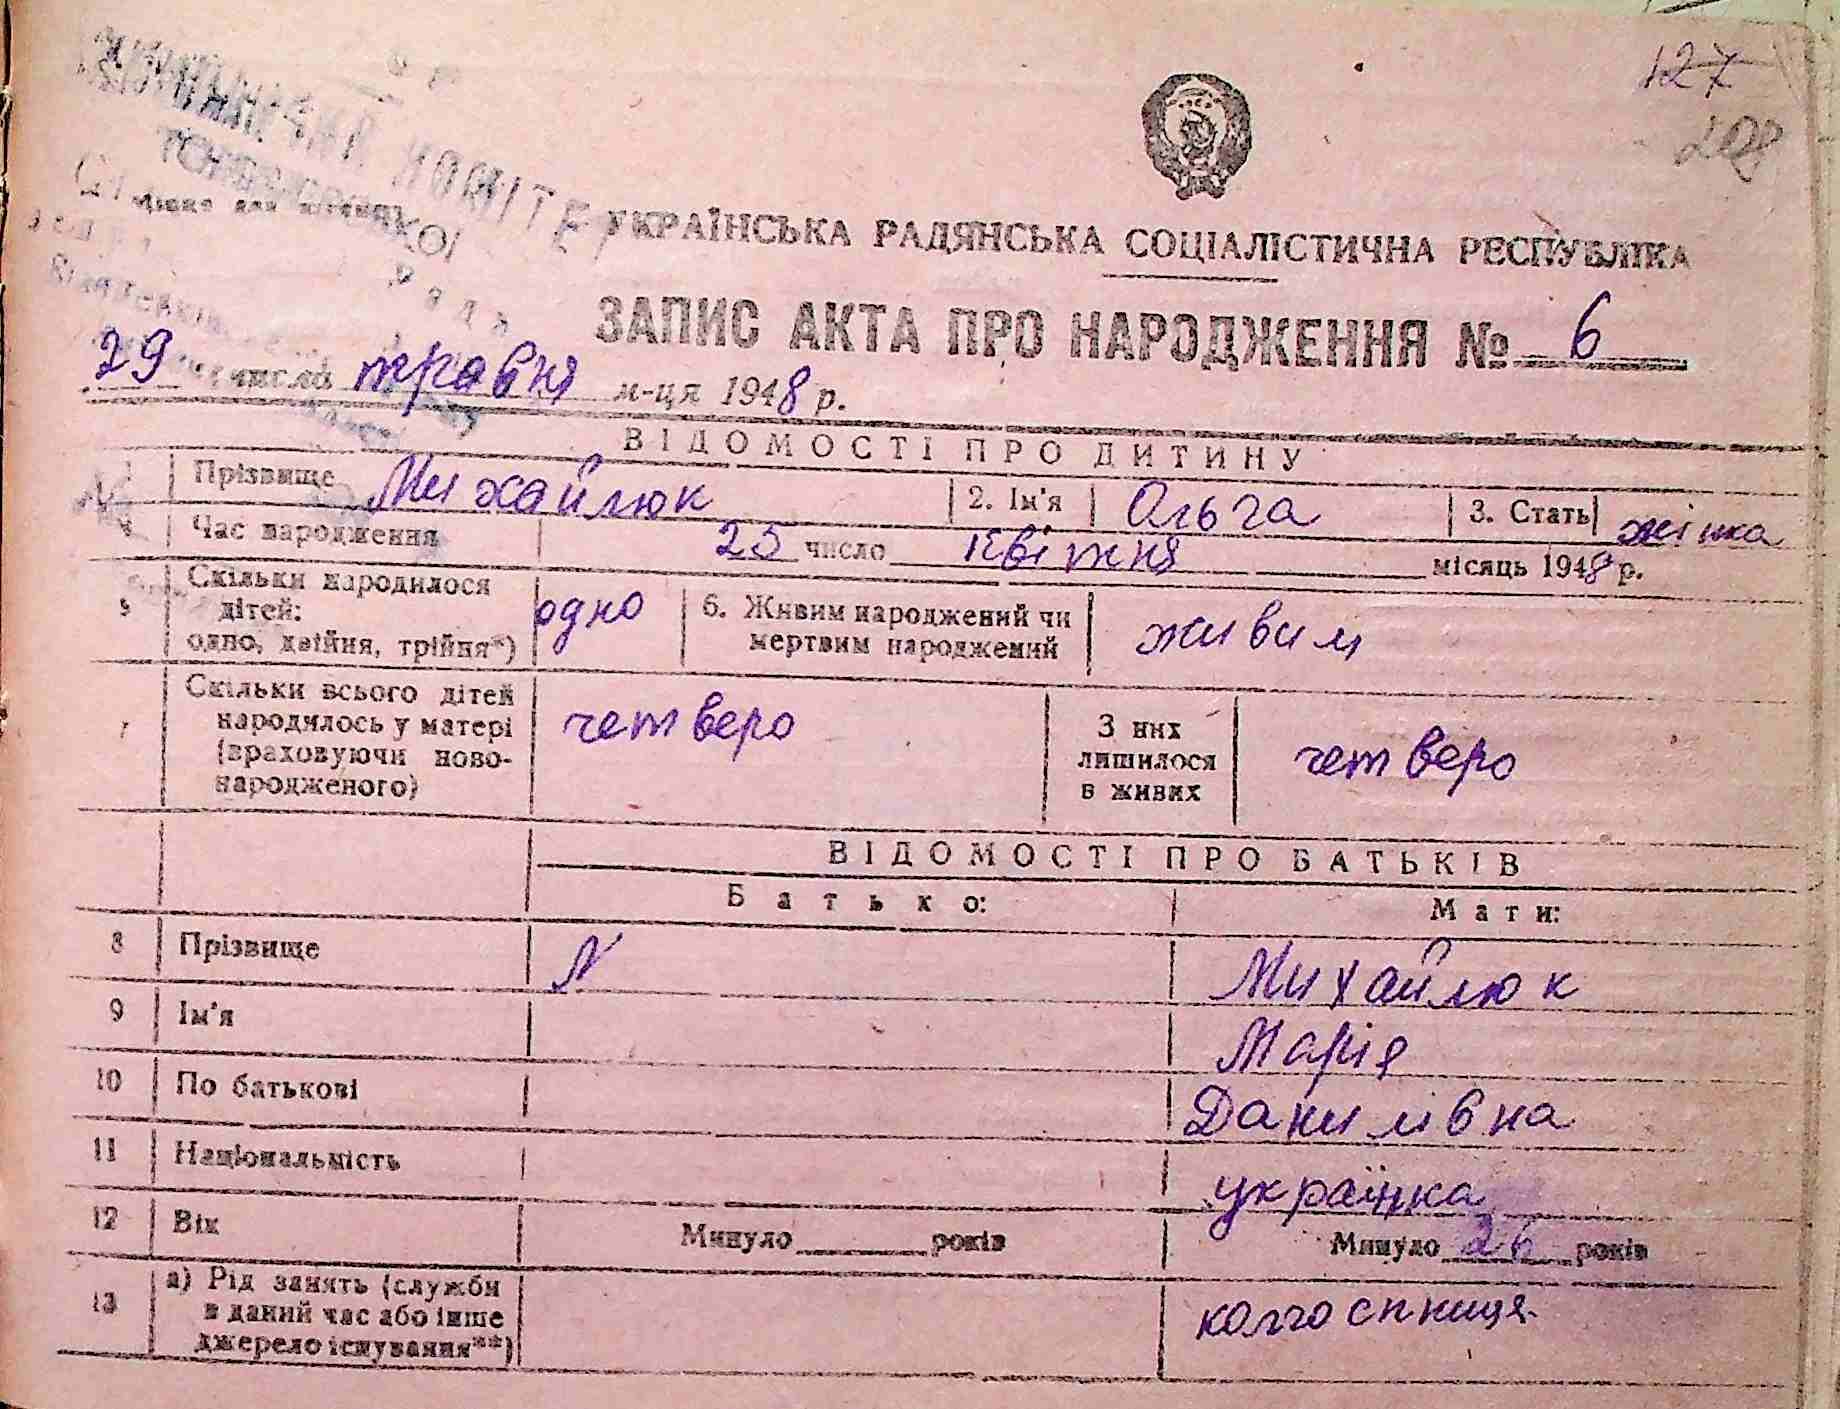 127
УКРАЇНСЬКА РАДЯНСЬКА СОЦІАЛІСТИЧНА РЕСПУБЛІКА
ЗАПИС АКТА ПРО НАРОДЖЕННЯ № 6
29 числа травня м-ця 1948 р.
ВІДОМОСТІ ПРО ДИТИНУ
1 Прізвище Михайлюк 2. Ім'я Ольга 3. Стать жінка
4 Час народження 25 число квітня місяць 1948 р.
5 Скільки народилося дітей: одно, двійня, трійня*) одно 6. Живим народжений чи мертвим народжений живим
7 Скільки всього дітей народилось у матері (враховуючи ново-народженого) четверо З них лишилося в живих четверо
ВІДОМОСТІ ПРО БАТЬКІВ
Батько: Мати:
8 Прізвище N Михайлюк
9 Ім'я Марія
10 По батькові Данилівна
11 Національність українка
12 Вік Минуло років Минуло 26 років
13 а) Рід занять (служби в даний час або інше джерело існування**) колгоспниця